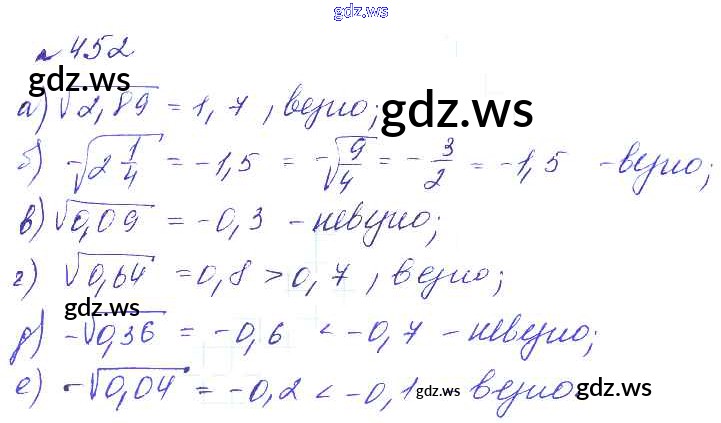 gdz.ws
№ 452
gdz.ws
а) √2,89 = 1,7, верно;
gdz.ws
б) -√2 1/4 = -1,5 = -√9/4 = -3/2 = -1,5 - верно;
в) √0,09 = -0,3 - неверно;
г) √0,64 = 0,8 > 0,7, верно;
gdz.ws
д) -√0,36 = -0,6 < -0,7 - неверно;
е) -√0,04 = -0,2 < -0,1 верно
gdz.ws
gdz.ws